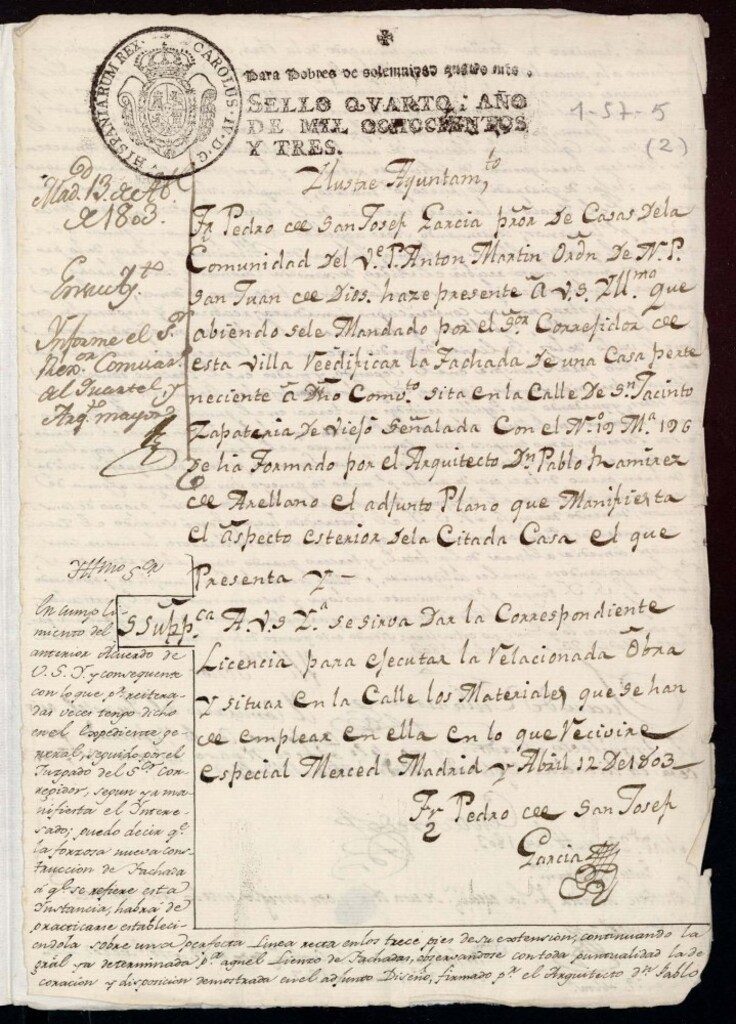 HISPANIARUM REX. CAROLUS·IV·D·G·
Para Pobres de solemnidad quatro mrs.
SELLO QVARTO: AÑO
DE MIL OCHOCIENTOS
Y TRES.
1-57-5
(2)
Yllustre Ayuntam.to
Fr. Pedro de San Josef Garcia pror De Casas Dela
Comunidad Del Ve. P. Anton Martin Ordn De N. P.
San Juan de Dios. haze presente â V.S. Yll.ma Que
abiendo sele Mandado por el Sor Correjidor de
esta Villa Reedificar la Fachada De una Casa perte
neciente â Dho Comv.to sita en la Calle De Sn Jacinto
Zapateria De Viejo Señalada Con el N.o 19 M.a 196
Se ha Formado por el Arquitecto Dn Pablo Ramirez
de Arellano el adjunto Plano que Manifiesta
el aspecto esterior dela Citada Casa el que
Presenta Y-
SSupp.ca A. V.S Y.a se sirva Dar la Correspondiente
Licencia para ejecutar la Relacionada Obra
Y situar en la Calle los Materiales que se han
de emplear en ella en lo que Recivire
especial Merced Madrid y Abril 12 De 1803
Fr Pedro de San Josef
Garcia
Mad.d 13 de Ab.l
de 1803.
En su Ay.to
Informe el S.r
Rex.or Comisar.o
del Quartel, y
Arq.to mayor
Yllmo Sor
En cumpli-
miento del
anterior Acuerdo de
V.S.Y. y consequente
con lo que p.r reitera-
das veces tengo dicho
en el Expediente ge-
neral, seguido por el
Juzgado del S.or Cor-
regidor, segun ya ma-
nifiesta el Intere-
sado; puedo decir q.e
la forzosa nueva cons-
truccion de Fachada
á q.e se refiere esta
Instancia, habrá de
practicarse establecí-
endola sobre una perfecta Linea recta en los trece pies de su extension, continuando la
gral ya determinada p.a aquel Lienzo de Fachadas, observandose con toda puntualidad la de
coracion y disposicion demostrada en el adjunto Diseño, firmado p.r el Arquitecto d.n Pablo